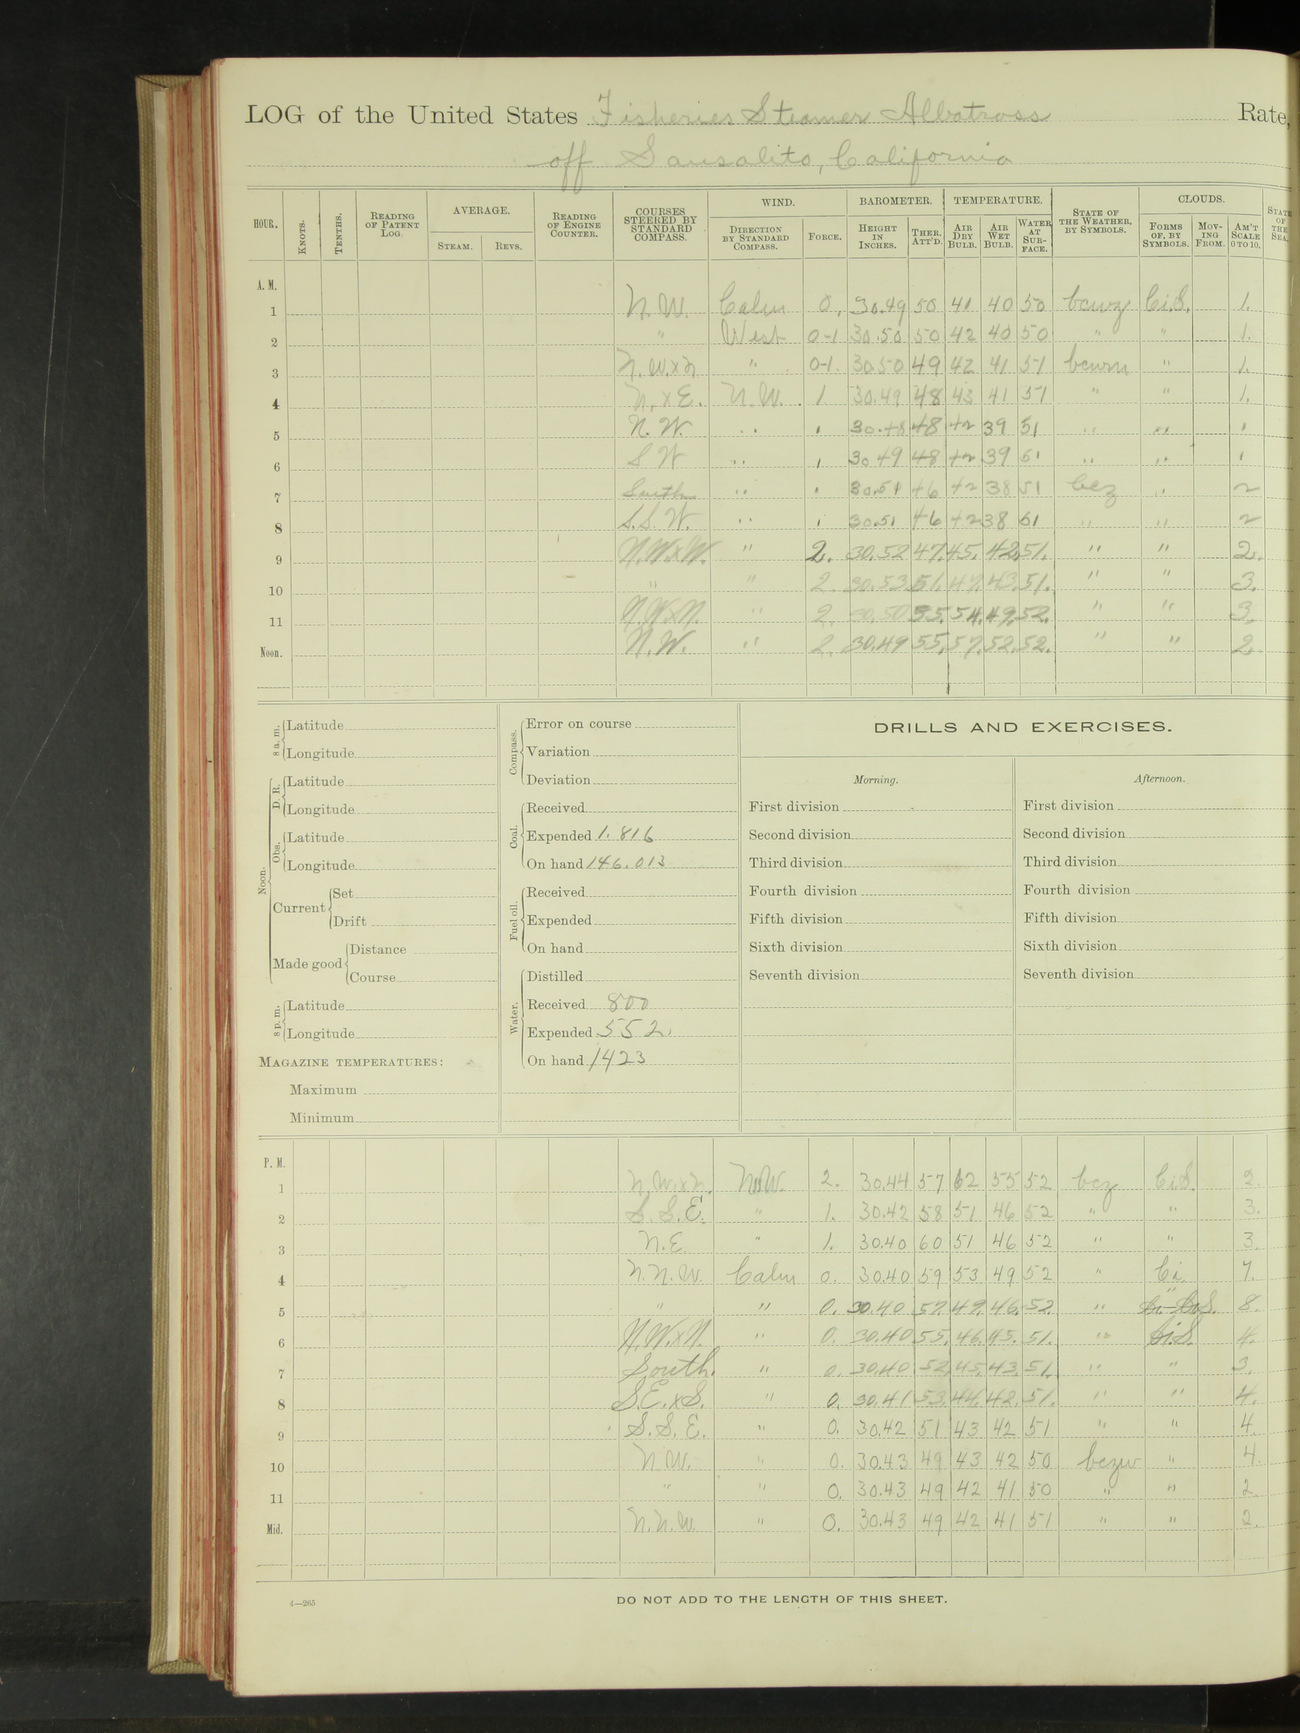 LOG of the United States Fisheries Steamer Albatross Rate,
off Sausalito, California
HOUR. KNOTS. TENTHS. READING OF PATENT LOG. AVERAGE. STEAM. REVS. READING OF ENGINE COUNTER. COURSES STEERED BY STANDARD COMPASS. WIND. DIRECTION BY STANDARD COMPASS. FORCE. BAROMETER. HEIGHT IN INCHES. THER. ATT'D. TEMPERATURE. AIR DRY BULB. AIR WET BULB. WATER AT SURFACE. STATE OF THE WEATHER, BY SYMBOLS. CLOUDS. FORMS OF, BY SYMBOLS. MOVING FROM. AM'T SCALE 0 TO 10. STATE OF THE SEA.
A. M.
1 N.W. Calm 0. 30.49 50 41 40 50 Ci.S. 1.
2 " West 0-1 30.50 50 42 40 50 " " 1.
3 N.W.xN. " 0-1. 30.50 49 42 41 51 bcwm " 1.
4 N.xE. N.W. 1 30.49 48 43 41 51 " " 1.
5 N.W. " 1 30.48 48 42 39 51 " " 1
6 S W " 1 30 49 48 42 39 51 " " 1
7 South " 1 30.51 46 42 38 51 bcz " 2
8 S.S.W. " 1 30.51 46 42 38 51 " " 2
9 N.W.xW. " 2. 30.52 47. 45. 42. 51. " " 2.
10 " " 2. 30.53 51. 47. 43. 51. " " 3.
11 N.W.xN. " 2. 30.50 55. 54. 49. 52. " " 3.
Noon. N.W. " 2. 30.49 55. 57. 52. 52. " " 2.
8 a. m. Latitude
Longitude
Noon. D. R. Latitude
Longitude
Obs. Latitude
Longitude
Current Set
Drift
Made good Distance
Course
8 p. m. Latitude
Longitude
MAGAZINE TEMPERATURES:
Maximum
Minimum
Compass. Error on course
Variation
Deviation
Coal. Received
Expended 1.816
On hand 146.013
Fuel oil. Received
Expended
On hand
Water. Distilled
Received 800
Expended 552.
On hand 1423
DRILLS AND EXERCISES.
Morning.
First division
Second division
Third division
Fourth division
Fifth division
Sixth division
Seventh division
Afternoon.
First division
Second division
Third division
Fourth division
Fifth division
Sixth division
Seventh division
P. M.
1 N.W.xN. N.W. 2. 30.44 57 62 55 52 bcz Ci.S. 2.
2 S.S.E. " 1. 30.42 58 51 46 52 " " 3.
3 N.E. " 1. 30.40 60 51 46 52 " " 3.
4 N.N.W. Calm 0. 30.40 59 53 49 52 " Ci. 7.
5 " " 0. 30.40 57. 49. 46. 52 " 8.
6 N.W.xN. " 0. 30.40 55. 46. 45. 51. " Ci.S. 4.
7 South. " 0. 30.40 52 45. 43. 51. " " 3.
8 S.E.xS. " 0. 30.41 53. 44. 42. 51. " " 4.
9 S.S.E. " 0. 30.42 51 43 42 51 " " 4.
10 N.W. " 0. 30.43 49 43 42 50 bczw " 4.
11 " " 0. 30.43 49 42 41 50 " " 2.
Mid. N.N.W. " 0. 30.43 49 42 41 51 " " 2.
4—265
DO NOT ADD TO THE LENGTH OF THIS SHEET.